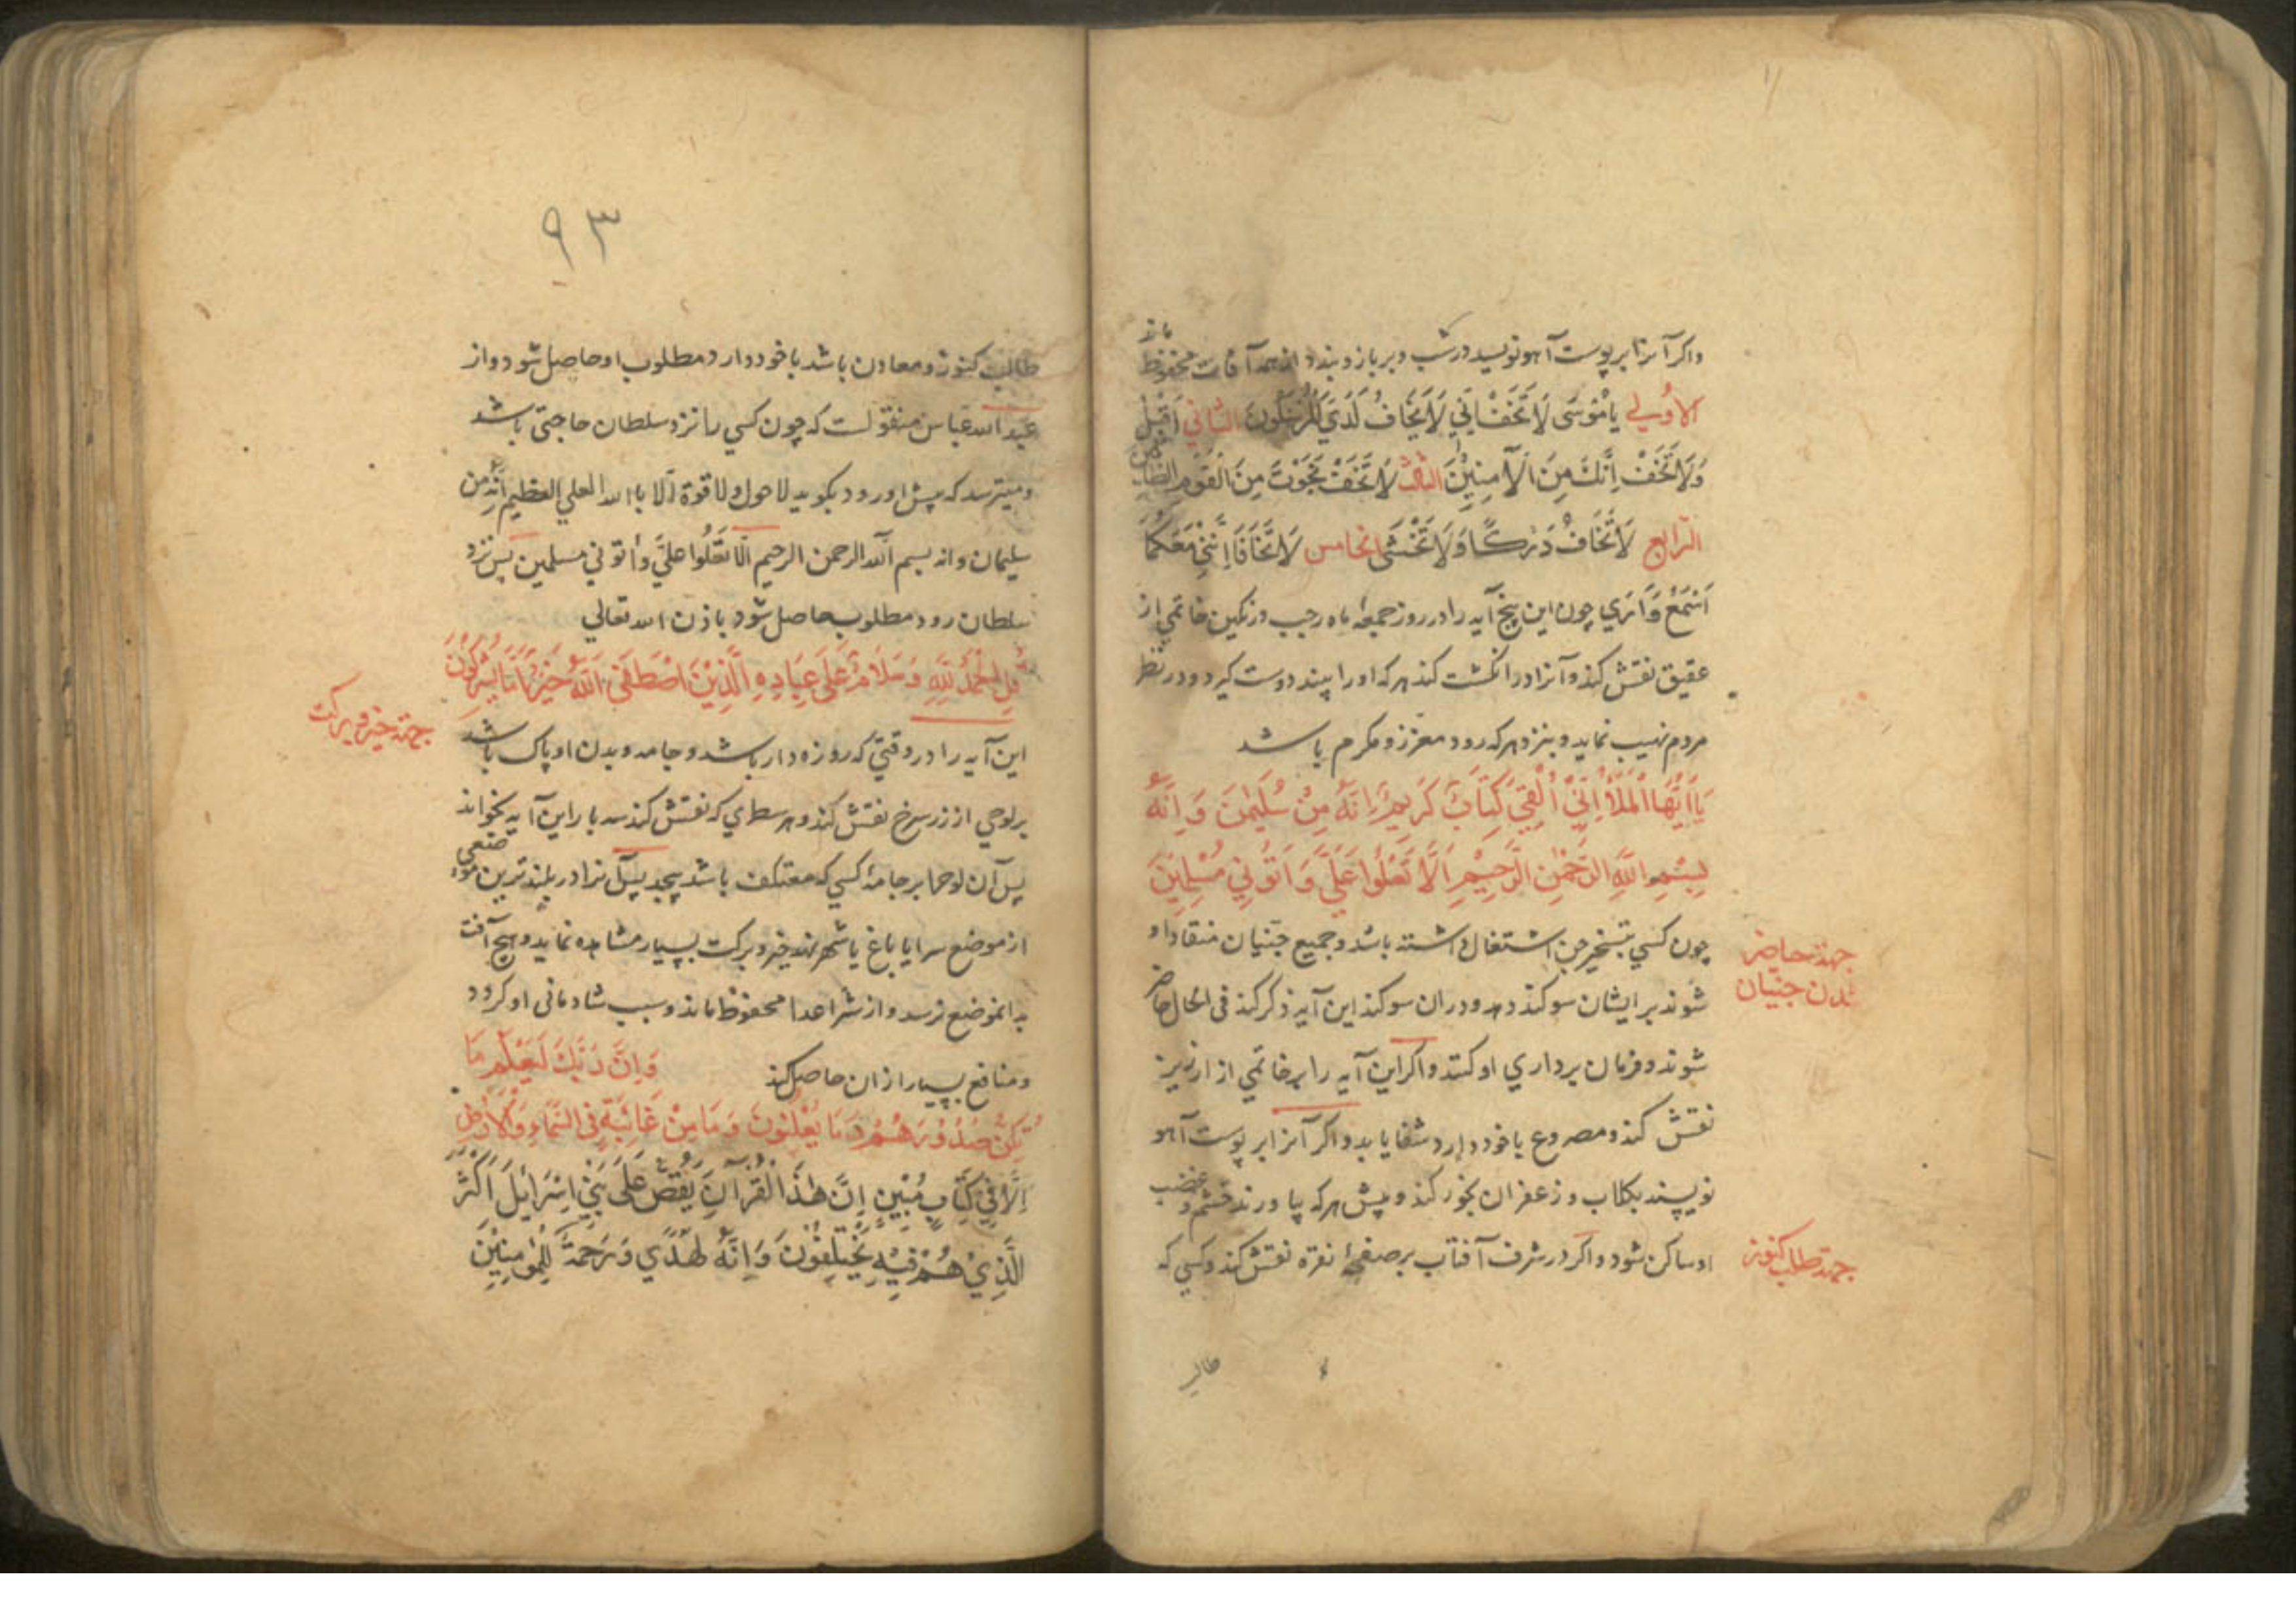 واكر آنرا بر پوست آهو نويسد در شب و بر بازو بندد از همه آفات محفوظ ماند
الاُولي يا مُوسَى لَا تَخَفْ اِنّي لَا يَخَافُ لَدَيَّ الْمُرْسَلُونَ الثاني اَقْبِلْ
وَلَا تَخَفْ اِنَّكَ مِنَ الْآمِنِيْنَ الثالث لَا تَخَفْ نَجَوْتَ مِنَ الْقَوْمِ الظالمين
الرابع لَا تَخَافُ دَرَكًا وَلَا تَخْشَى الخامس لَا تَخَافَا اِنَّنِيْ مَعَكُمَا
اَسْمَعُ وَاَرَي چون اين پنج آيه را در روز جمعهٔ ماه رجب در نكين خاتمي از
عقيق نقش كند و آنرا در انكشت كند هر كه او را بيند دوست كيرد و در نظر
مردم مهيب نمايد و بنزد هر كه رود معزز و مكرم باشد
يَا اَيُّهَا الْمَلَأُ اِنّيْ اُلْقِيَ اِلَيَّ كِتَابٌ كَرِيمٌ اِنَّهُ مِنْ سُلَيْمٰنَ وَاِنَّهُ
بِسْمِ اللَّهِ الرَّحْمٰنِ الرَّحِيْمِ اَلَّا تَعْلُوا عَلَيَّ وَاْتُونِي مُسْلِمِيْنَ
چون كسي بتسخير جن اشتغال داشته باشد و جميع جنيان منقاد او
جهة حاضر
شدن جنيان
شوند بر ايشان سوكند دهد و در ان سوكند اين آيه ذكر كند في الحال حاضر
شوند و فرمان برداري او كنند و اكر اين آيه را بر خاتمي از ارزيز
نقش كند و مصروع با خود دارد شفا يابد و اكر آنرا بر پوست آهو
نويسند بكلاب و زعفران بخور كند و پيش هر كه بياورند خشم و غضب
او ساكن شود و اكر در شرف آفتاب بر صفحهٔ نقره نقش كند و كسي كه
جهة طلب كنوز
طالب
٩٣
طالب كنوز و معادن باشد با خود دارد مطلوب او حاصل شود و از
عبد الله عباس منقولست كه چون كسي را نزد سلطان حاجتي باشد
و ميترسد كه پيش او رود بكويد لا حول ولا قوة الا با الله العلي العظيم انه من
سليمان وانه بسم الله الرحمن الرحيم الّا تعْلُوا عليَّ وأتوني مسلمين پس نزد
سلطان رود مطلوب حاصل شود باذن الله تعالي
قُلِ الْحَمْدُ لِلَّهِ وَسَلَامٌ عَلَى عِبَادِهِ الَّذِيْنَ اصْطَفَى اللَّهُ خَيْرٌ اَمَّا يُشْرِكُونَ
جهة خير و بركت
اين آيه را در وقتي كه روزه دار باشد و جامه و بدن او پاك باشد
بر لوحي از زر سرخ نقش كند و هر سطري كه نقش كند سه بار اين آيه بخواند
پس آن لوح را بر جامهٔ كسي كه معتكف باشد پيچد پس آنرا در بلند ترين موضعي
از موضع سرا يا باغ يا شهر نهد خير و بركت بسيار مشاهده نمايد و هيچ آفت
بدانموضع نرسد و از شر اعدا محفوظ ماند و سبب شادماني او كردد
و منافع بسيار از ان حاصل كند وَاِنَّ رَبَّكَ لَيَعْلَمُ مَا
تُكِنُّ صُدُوْرُهُمْ وَمَا يُعْلِنُونَ وَمَا مِنْ غَائِبَةٍ فِي السَّمَاءِ وَالْاَرْضِ
اِلَّا فِيْ كِتَابٍ مُبِيْنٍ اِنَّ هٰذَا الْقُرْآنَ يَقُصُّ عَلَى بَنِيْ اِسْرَائِلَ اَكْثَرَ
الَّذِيْ هُمْ فِيْهِ يَخْتَلِفُوْنَ وَاِنَّهُ لَهُدًي وَرَحْمَةٌ لِلْمُؤْمِنِيْنَ